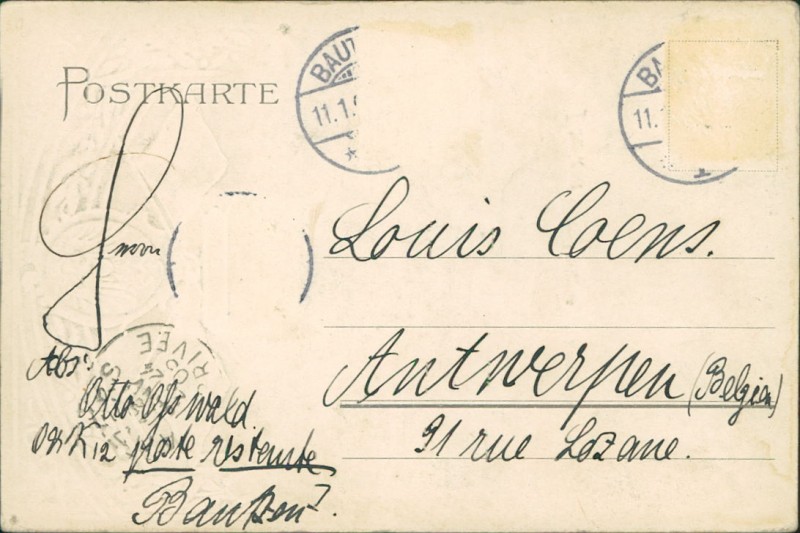 POSTKARTE
BAUT
11.1.
BA
11.
Louis Coens.
Antwerpen (Belgien)
91 rue Lozane.
ARRIVÉE
Abs:
Otto Oswald
K12 poste restante
Bautzen